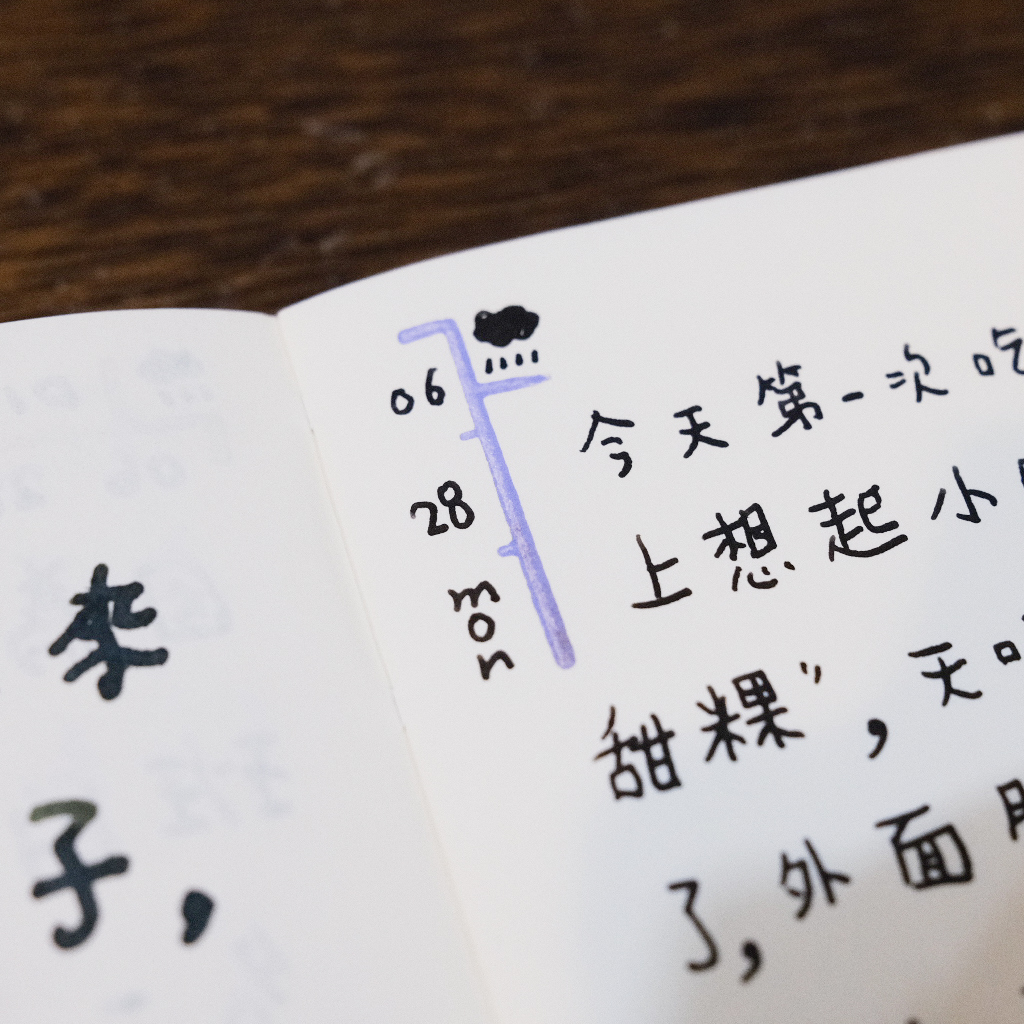 来
子,
06
28
mon
今天第一次吃
上想起小
甜粿”,天
了,外面